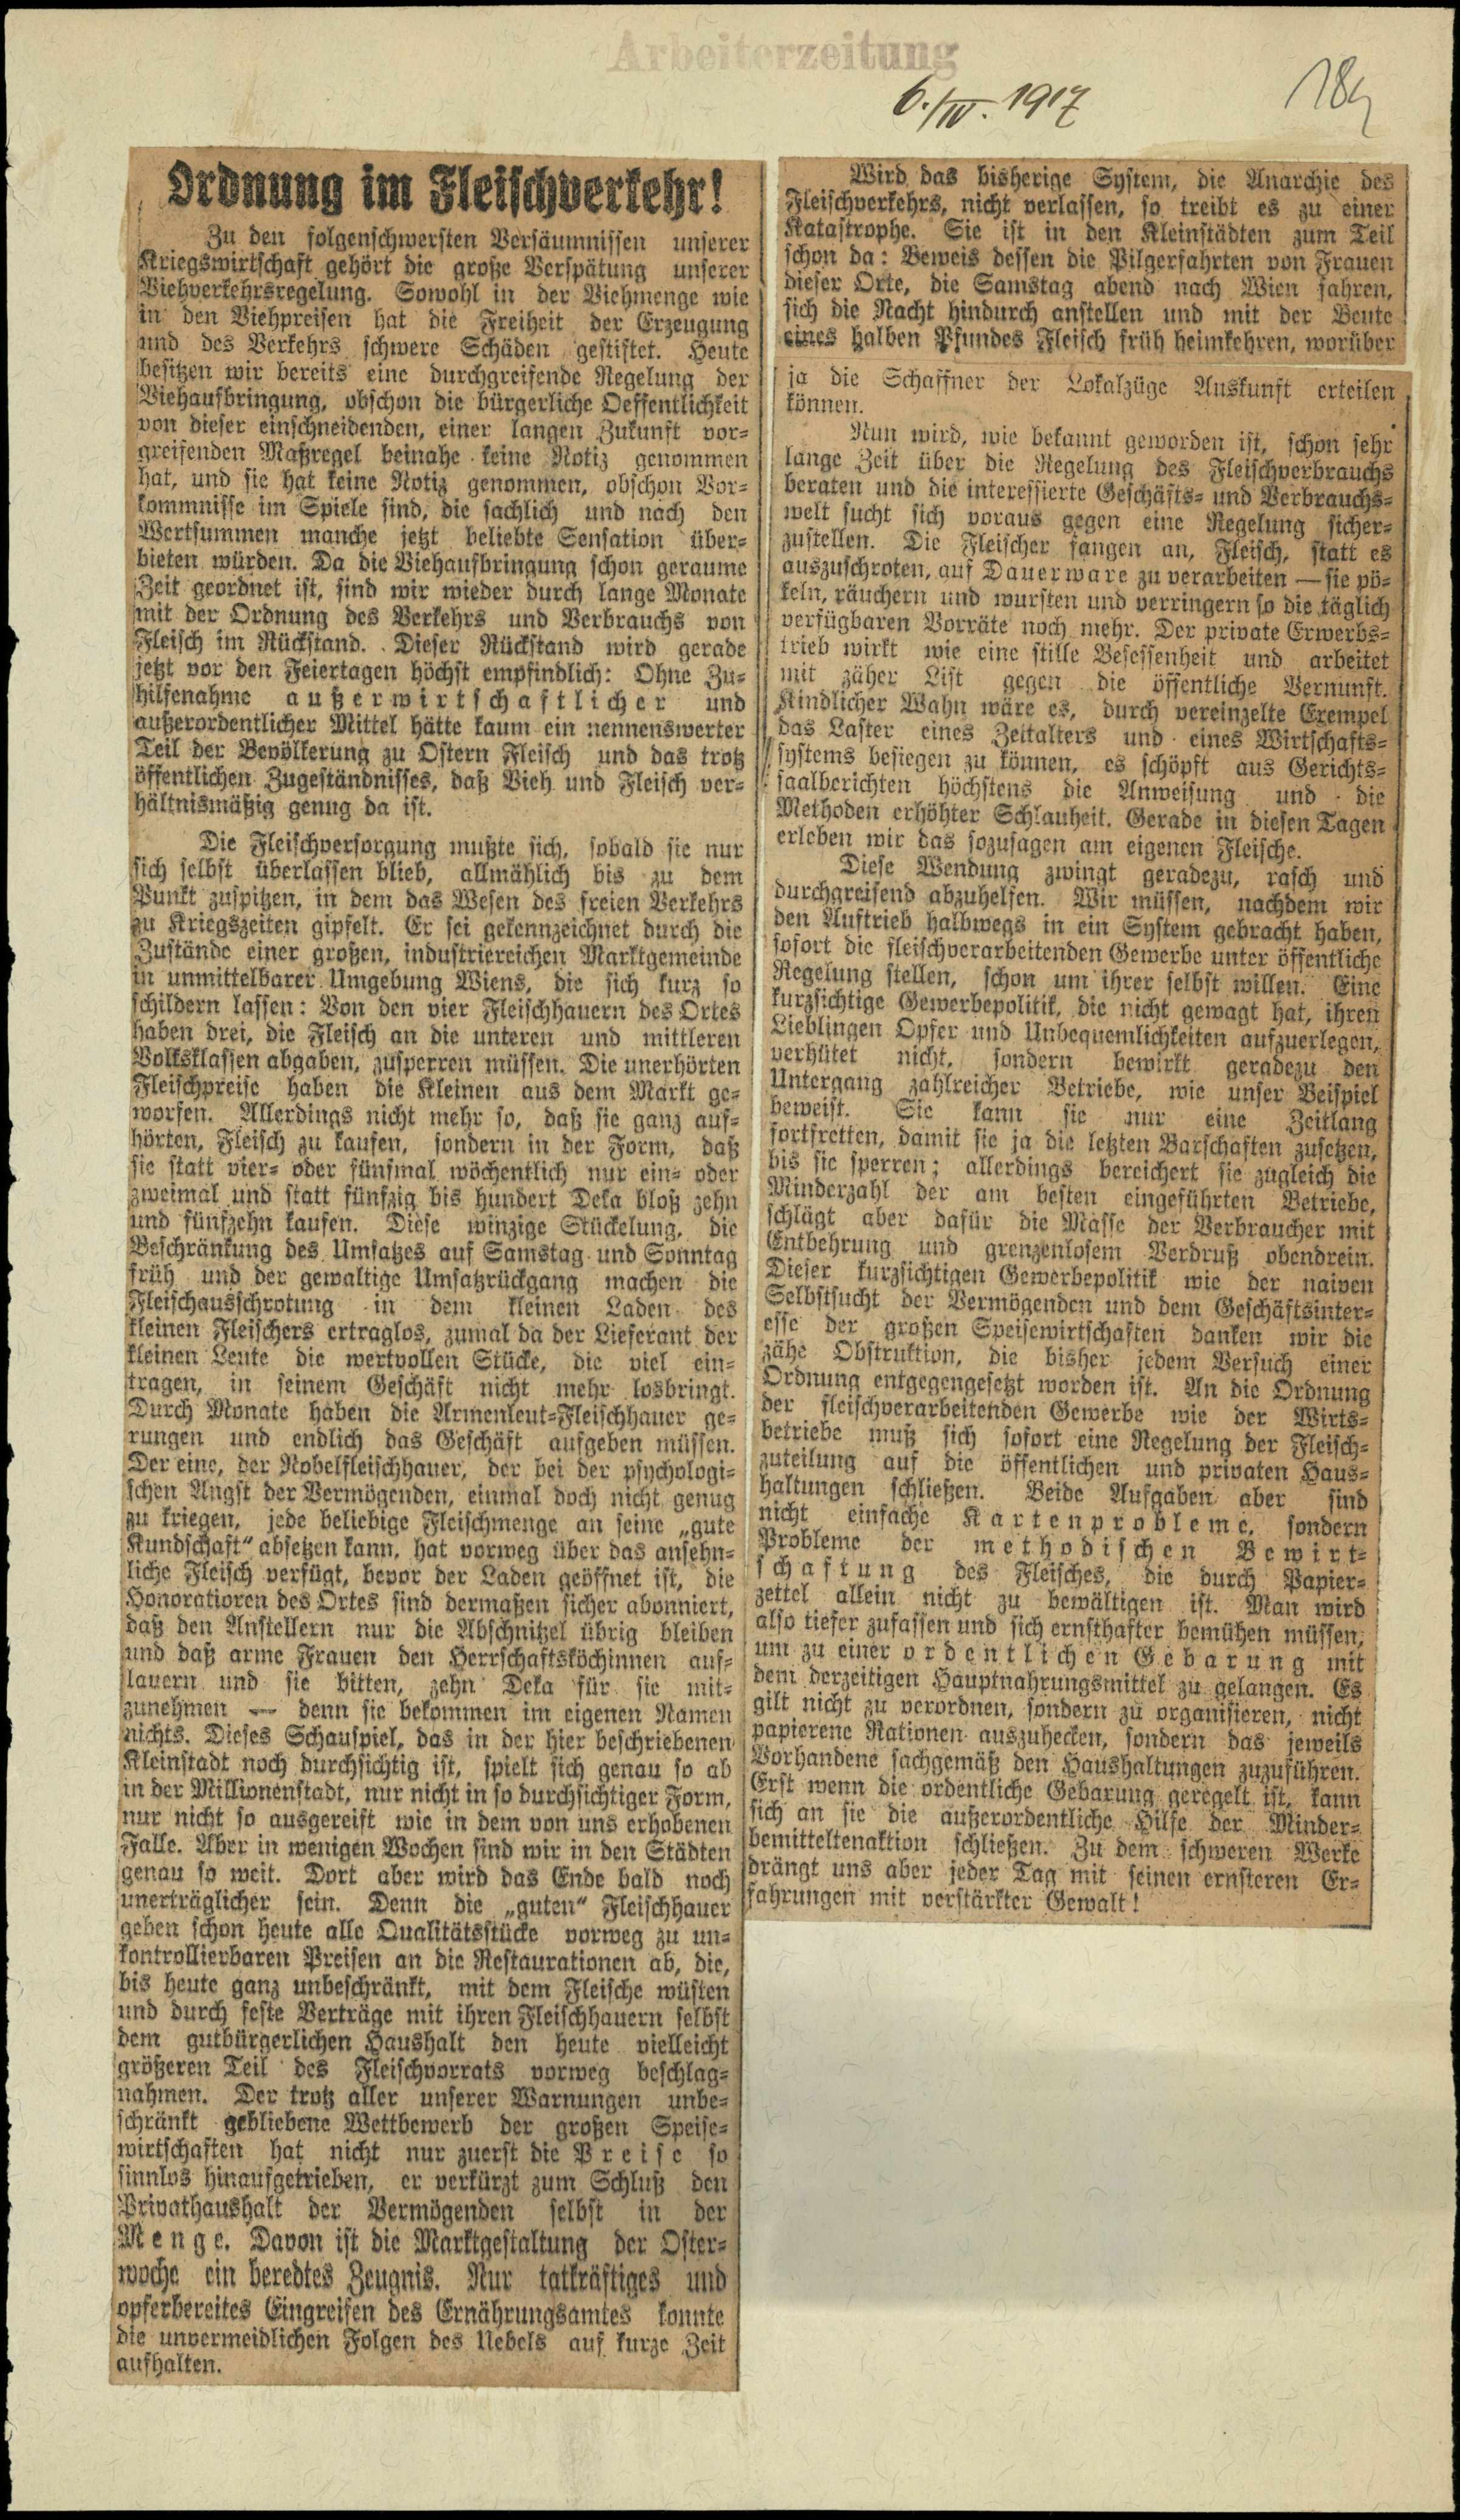 Arbeiterzeitung
6./IV. 1917
184
Ordnung im Fleischverkehr!
Zu den folgenschwersten Versäumnissen unserer
Kriegswirtschaft gehört die große Verspätung unserer
Viehverkehrsregelung. Sowohl in der Viehmenge wie
in den Viehpreisen hat die Freiheit der Erzeugung
und des Verkehrs schwere Schäden gestiftet. Heute
besitzen wir bereits eine durchgreifende Regelung der
Viehaufbringung, obschon die bürgerliche Oeffentlichkeit
von dieser einschneidenden, einer langen Zukunft vor-
greifenden Maßregel beinahe keine Notiz genommen
hat, und sie hat keine Notiz genommen, obschon Vor-
kommnisse im Spiele sind, die sachlich und nach den
Wertsummen manche jetzt beliebte Sensation über-
bieten würden. Da die Viehaufbringung schon geraume
Zeit geordnet ist, sind wir wieder durch lange Monate
mit der Ordnung des Verkehrs und Verbrauchs von
Fleisch im Rückstand. Dieser Rückstand wird gerade
jetzt vor den Feiertagen höchst empfindlich: Ohne Zu-
hilfenahme außerwirtschaftlicher und
außerordentlicher Mittel hätte kaum ein nennenswerter
Teil der Bevölkerung zu Ostern Fleisch und das trotz
öffentlichen Zugeständnisses, daß Vieh und Fleisch ver-
hältnismäßig genug da ist.
Die Fleischversorgung mußte sich, sobald sie nur
sich selbst überlassen blieb, allmählich bis zu dem
Punkt zuspitzen, in dem das Wesen des freien Verkehrs
zu Kriegszeiten gipfelt. Er sei gekennzeichnet durch die
Zustände einer großen, industriereichen Marktgemeinde
in unmittelbarer Umgebung Wiens, die sich kurz so
schildern lassen: Von den vier Fleischhauern des Ortes
haben drei, die Fleisch an die unteren und mittleren
Volksklassen abgaben, zusperren müssen. Die unerhörten
Fleischpreise haben die Kleinen aus dem Markt ge-
worfen. Allerdings nicht mehr so, daß sie ganz auf-
hörten, Fleisch zu kaufen, sondern in der Form, daß
sie statt vier- oder fünfmal wöchentlich nur ein- oder
zweimal und statt fünfzig bis hundert Deka bloß zehn
und fünfzehn kaufen. Diese winzige Stückelung, die
Beschränkung des Umsatzes auf Samstag und Sonntag
früh und der gewaltige Umsatzrückgang machen die
Fleischausschrotung in dem kleinen Laden des
kleinen Fleischers ertraglos, zumal da der Lieferant der
kleinen Leute die wertvollen Stücke, die viel ein-
tragen, in seinem Geschäft nicht mehr losbringt.
Durch Monate haben die Armenleut-Fleischhauer ge-
rungen und endlich das Geschäft aufgeben müssen.
Der eine, der Nobelfleischhauer, der bei der psychologi-
schen Angst der Vermögenden, einmal doch nicht genug
zu kriegen, jede beliebige Fleischmenge an seine „gute
Kundschaft“ absetzen kann, hat vorweg über das ansehn-
liche Fleisch verfügt, bevor der Laden geöffnet ist, die
Honoratioren des Ortes sind dermaßen sicher abonniert,
daß den Anstellern nur die Abschnitzel übrig bleiben
und daß arme Frauen den Herrschaftsköchinnen auf-
lauern und sie bitten, zehn Deka für sie mit-
zunehmen — denn sie bekommen im eigenen Namen
nichts. Dieses Schauspiel, das in der hier beschriebenen
Kleinstadt noch durchsichtig ist, spielt sich genau so ab
in der Millionenstadt, nur nicht in so durchsichtiger Form,
nur nicht so ausgereift wie in dem von uns erhobenen
Falle. Aber in wenigen Wochen sind wir in den Städten
genau so weit. Dort aber wird das Ende bald noch
unerträglicher sein. Denn die „guten“ Fleischhauer
geben schon heute alle Qualitätsstücke vorweg zu un-
kontrollierbaren Preisen an die Restaurationen ab, die,
bis heute ganz unbeschränkt, mit dem Fleische wüsten
und durch feste Verträge mit ihren Fleischhauern selbst
dem gutbürgerlichen Haushalt den heute vielleicht
größeren Teil des Fleischvorrats vorweg beschlag-
nahmen. Der trotz aller unserer Warnungen unbe-
schränkt gebliebene Wettbewerb der großen Speise-
wirtschaften hat nicht nur zuerst die Preise so
sinnlos hinaufgetrieben, er verkürzt zum Schluß den
Privathaushalt der Vermögenden selbst in der
Menge. Davon ist die Marktgestaltung der Oster-
woche ein beredtes Zeugnis. Nur tatkräftiges und
opferbereites Eingreifen des Ernährungsamtes konnte
die unvermeidlichen Folgen des Uebels auf kurze Zeit
aufhalten.
Wird das bisherige System, die Anarchie des
Fleischverkehrs, nicht verlassen, so treibt es zu einer
Katastrophe. Sie ist in den Kleinstädten zum Teil
schon da: Beweis dessen die Pilgerfahrten von Frauen
dieser Orte, die Samstag abend nach Wien fahren,
sich die Nacht hindurch anstellen und mit der Beute
eines halben Pfundes Fleisch früh heimkehren, worüber
ja die Schaffner der Lokalzüge Auskunft erteilen
können.
Nun wird, wie bekannt geworden ist, schon sehr
lange Zeit über die Regelung des Fleischverbrauchs
beraten und die interessierte Geschäfts- und Verbrauchs-
welt sucht sich voraus gegen eine Regelung sicher-
zustellen. Die Fleischer fangen an, Fleisch, statt es
auszuschroten, auf Dauerware zu verarbeiten — sie pö-
keln, räuchern und wursten und verringern so die täglich
verfügbaren Vorräte noch mehr. Der private Erwerbs-
trieb wirkt wie eine stille Besessenheit und arbeitet
mit zäher List gegen die öffentliche Vernunft.
Kindlicher Wahn wäre es, durch vereinzelte Exempel
das Laster eines Zeitalters und eines Wirtschafts-
systems besiegen zu können, es schöpft aus Gerichts-
saalberichten höchstens die Anweisung und die
Methoden erhöhter Schlauheit. Gerade in diesen Tagen
erleben wir das sozusagen am eigenen Fleische.
Diese Wendung zwingt geradezu, rasch und
durchgreifend abzuhelfen. Wir müssen, nachdem wir
den Auftrieb halbwegs in ein System gebracht haben,
sofort die fleischverarbeitenden Gewerbe unter öffentliche
Regelung stellen, schon um ihrer selbst willen. Eine
kurzsichtige Gewerbepolitik, die nicht gewagt hat, ihren
Lieblingen Opfer und Unbequemlichkeiten aufzuerlegen,
verhütet nicht, sondern bewirkt geradezu den
Untergang zahlreicher Betriebe, wie unser Beispiel
beweist. Sie kann sie nur eine Zeitlang
fortfretten, damit sie ja die letzten Barschaften zusetzen,
bis sie sperren; allerdings bereichert sie zugleich die
Minderzahl der am besten eingeführten Betriebe,
schlägt aber dafür die Masse der Verbraucher mit
Entbehrung und grenzenlosem Verdruß obendrein.
Dieser kurzsichtigen Gewerbepolitik wie der naiven
Selbstsucht der Vermögenden und dem Geschäftsinter-
esse der großen Speisewirtschaften danken wir die
zähe Obstruktion, die bisher jedem Versuch einer
Ordnung entgegengesetzt worden ist. An die Ordnung
der fleischverarbeitenden Gewerbe wie der Wirts-
betriebe muß sich sofort eine Regelung der Fleisch-
zuteilung auf die öffentlichen und privaten Haus-
haltungen schließen. Beide Aufgaben aber sind
nicht einfache Kartenprobleme, sondern
Probleme der methodischen Bewirt-
schaftung des Fleisches, die durch Papier-
zettel allein nicht zu bewältigen ist. Man wird
also tiefer zufassen und sich ernsthafter bemühen müssen,
um zu einer ordentlichen Gebarung mit
dem derzeitigen Hauptnahrungsmittel zu gelangen. Es
gilt nicht zu verordnen, sondern zu organisieren, nicht
papierene Rationen auszuhecken, sondern das jeweils
Vorhandene sachgemäß den Haushaltungen zuzuführen.
Erst wenn die ordentliche Gebarung geregelt ist, kann
sich an sie die außerordentliche Hilfe der Minder-
bemitteltenaktion schließen. Zu dem schweren Werke
drängt uns aber jeder Tag mit seinen ernsteren Er-
fahrungen mit verstärkter Gewalt!